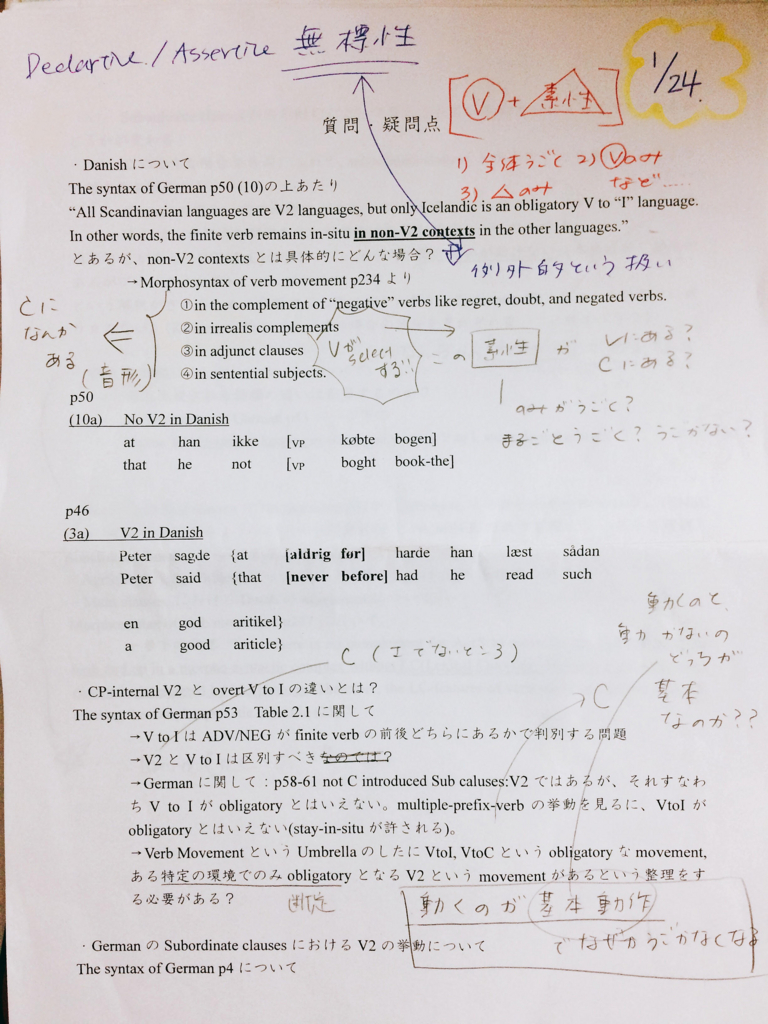 Declartive / Assertive 無標性
1/24.
[Ⓥ + 素性]
質問・疑問点
1) 全体うごく 2) Ⓥのみ
3) △のみ など……
・Danish について
The syntax of German p50 (10)の上あたり
“All Scandinavian languages are V2 languages, but only Icelandic is an obligatory V to “I” language.
In other words, the finite verb remains in-situ in non-V2 contexts in the other languages.”
とあるが、non-V2 contexts とは具体的にどんな場合？
例外的という扱い
→Morphosyntax of verb movement p234 より
①in the complement of “negative” verbs like regret, doubt, and negated verbs.
②in irrealis complements
③in adjunct clauses
④in sentential subjects.
Cに
なんか
ある
(音形)
Vが
select
する!!
この 素性 が Vにある？
Cにある？
のみがうごく？
まるごとうごく？うごかない？
p50
(10a) No V2 in Danish
at han ikke [VP købte bogen]
that he not [VP boght book-the]
p46
(3a) V2 in Danish
Peter sagde {at [aldrig før] harde han læst sådan
Peter said {that [never before] had he read such
en god aritikel}
a good ariticle}
動くのと、
動かないの
どっちが
基本
なのか??
C (Iでないところ)
・CP-internal V2 と overt V to I の違いとは？
The syntax of German p53 Table 2.1 に関して
→ C
→V to I は ADV/NEG が finite verb の前後どちらにあるかで判別する問題
→V2 と V to I は区別すべきなのでは？
→German に関して：p58-61 not C introduced Sub caluses:V2 ではあるが、それすなわ
ち V to I が obligatory とはいえない。multiple-prefix-verb の挙動を見るに、VtoI が
obligatory とはいえない(stay-in-situ が許される)。
→Verb Movement という Umbrella のしたに VtoI, VtoC という obligatory な movement,
ある特定の環境でのみ obligatory となる V2 という movement があるという整理をす
る必要がある？
断定
動くのが 基本動作
でなぜかうごかなくなる
・German の Subordinate clauses における V2 の挙動について
The syntax of German p4 について